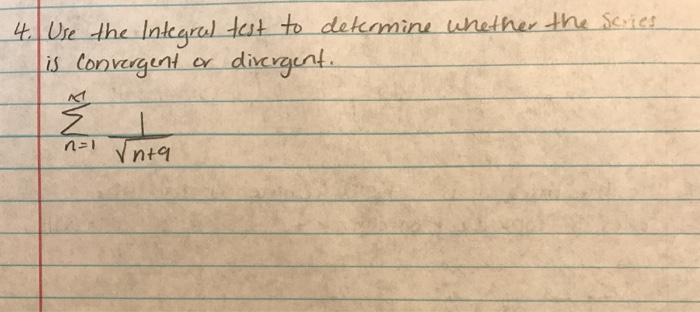 4. Use the Integral test to determine whether the series
is convergent or divergent.
∞
Σ 1
n=1 √n+9